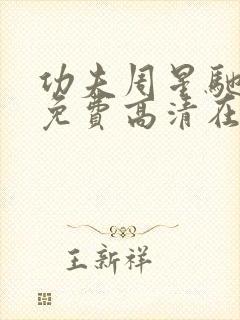 功夫周星驰
免費高清在
王新祥